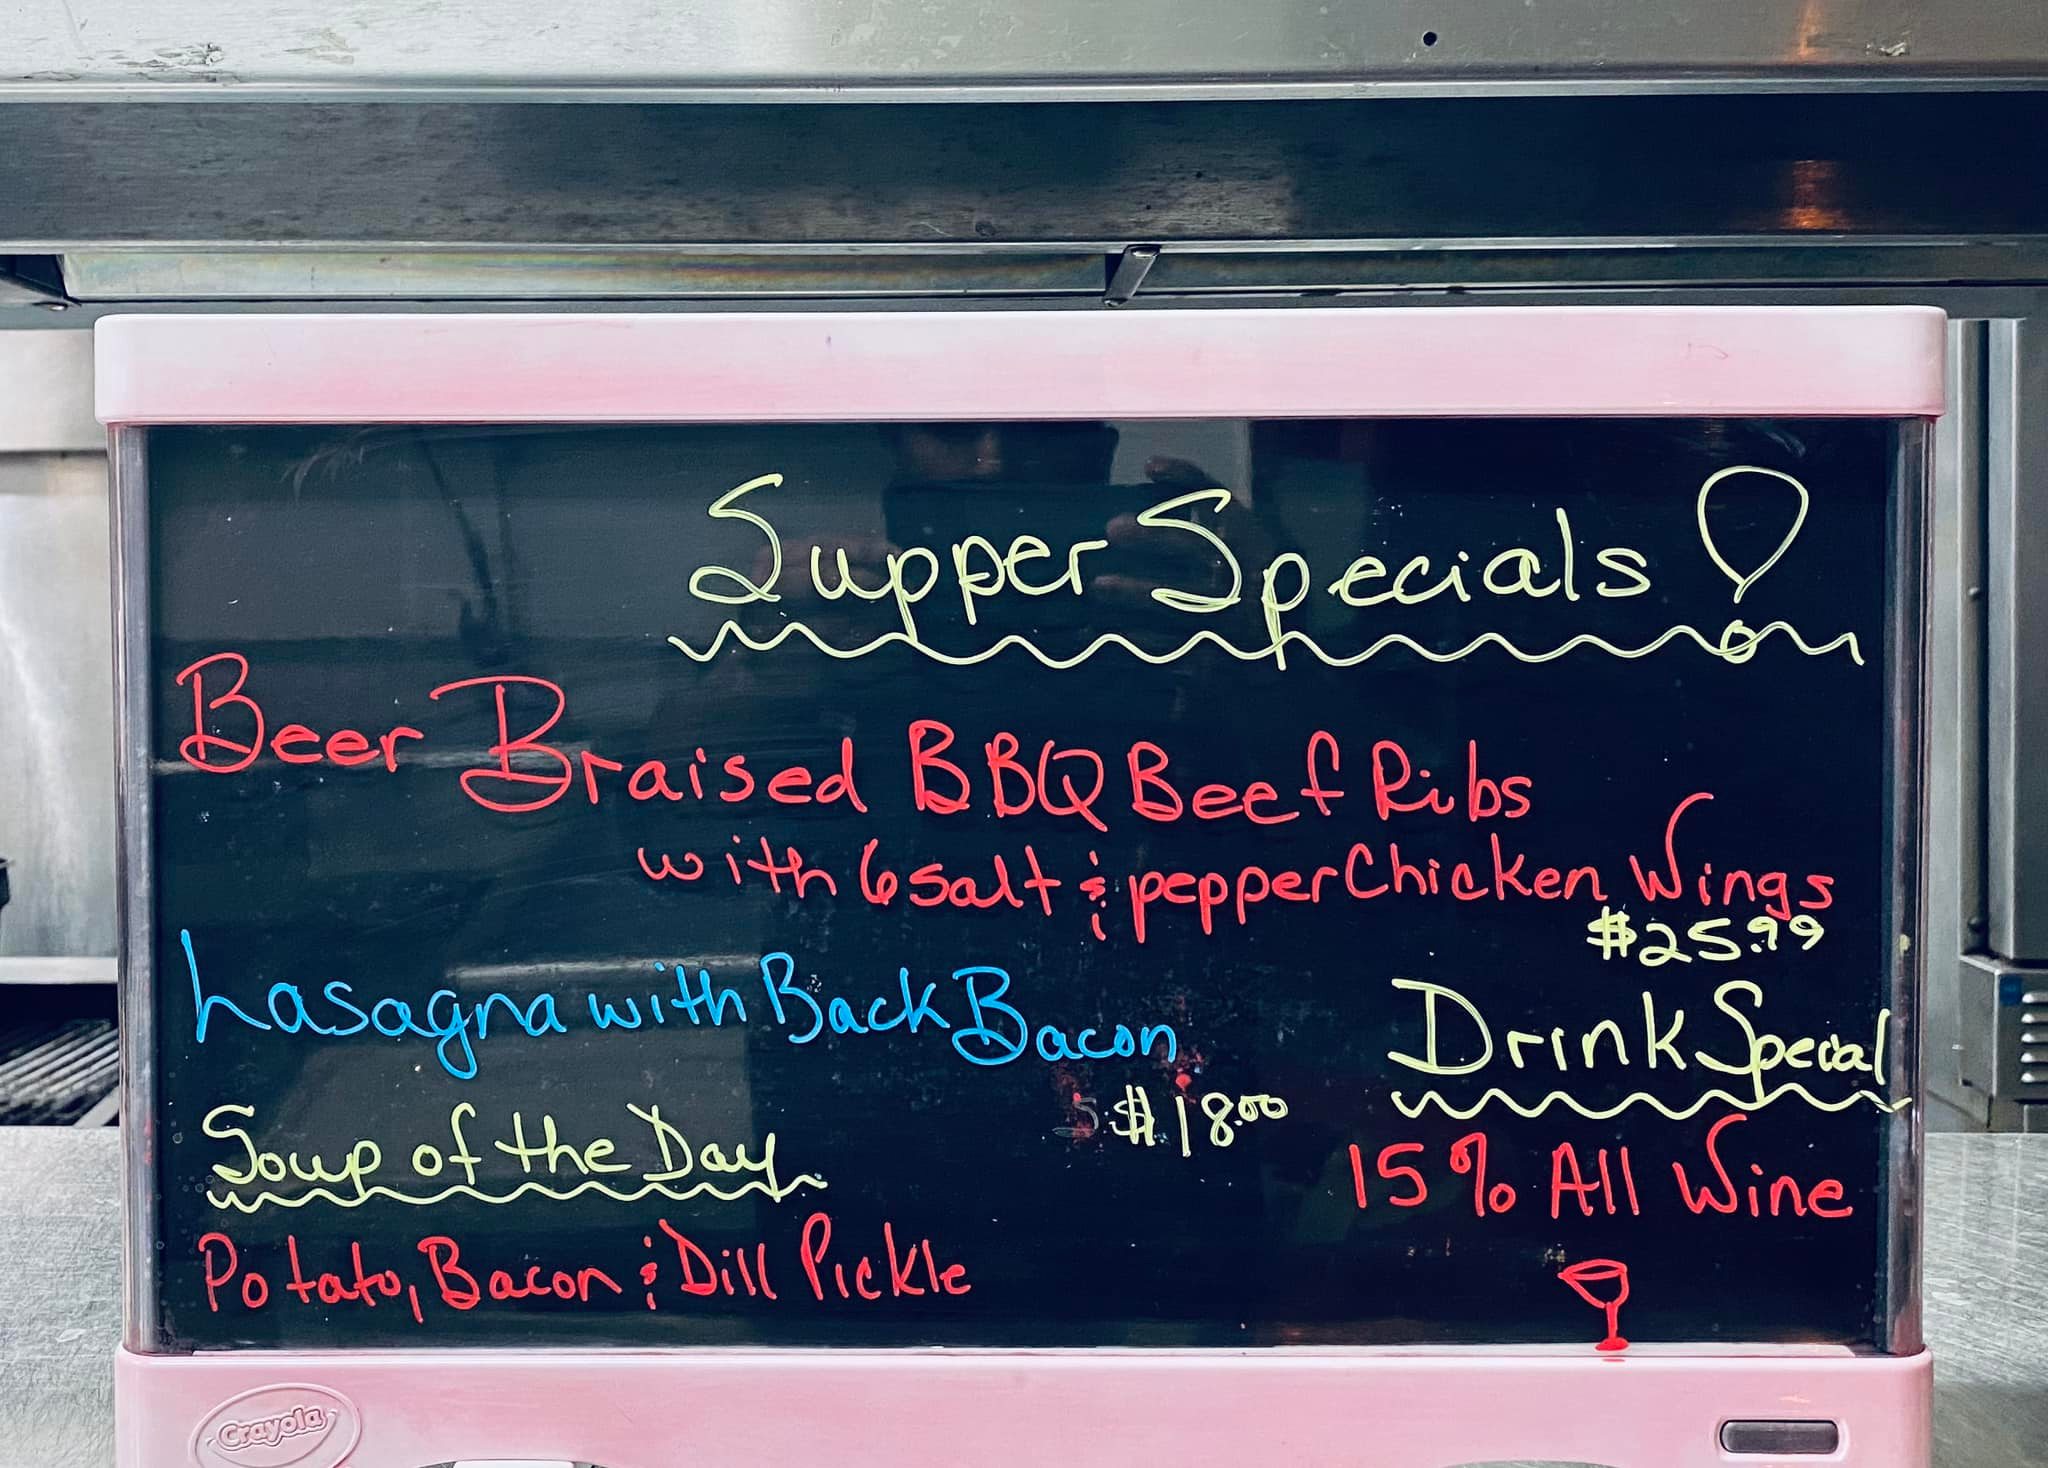 Supper Specials!
Beer Braised BBQ Beef Ribs
with 6 salt & pepper Chicken Wings
$25.99
Lasagna with Back Bacon
$18.00
Drink Special
15% All Wine
Soup of the Day
Potato, Bacon & Dill Pickle
Crayola